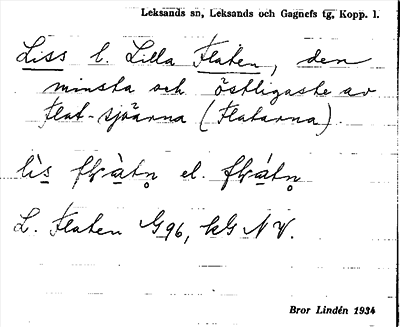 Leksands sn, Leksands och Gagnefs tg, Kopp. l.
Liss l. Lilla Flaten, den
minsta och östligaste av
Flat-sjöarna (Flatarna).
lìs el.
L. Flaten G 96, kG NV.
Bror Lindén 1934